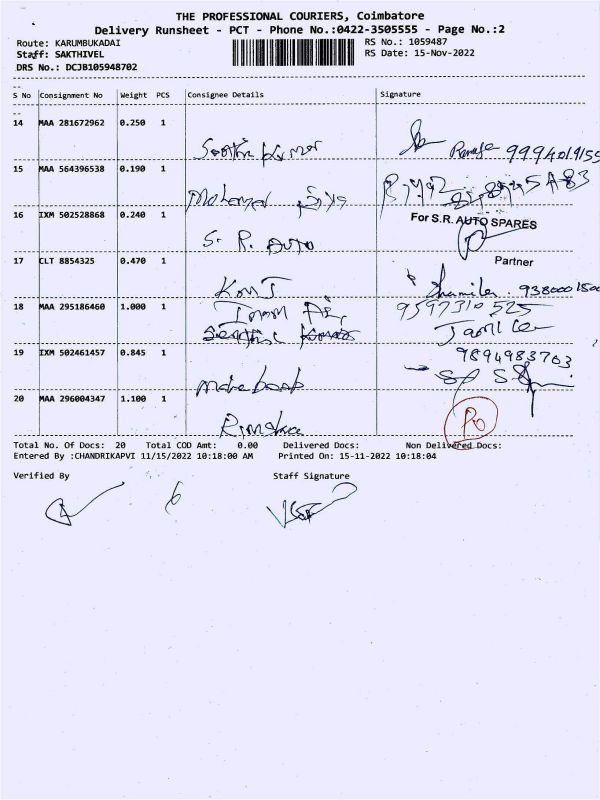 THE PROFESSIONAL COURIERS, Coimbatore
Delivery Runsheet - PCT - Phone No.:0422-3505555 - Page No.:2
Route: KARUMBUKADAI
RS No.: 1059487
Staff: SAKTHIVEL
RS Date: 15-Nov-2022
DRS No.: DCJB105948702
S No Consignment No Weight PCS Consignee Details Signature
14 MAA 281672962 0.250 1
9994019155
15 MAA 564396538 0.190 1
Mohamed
16 IXM 502528868 0.240 1
For S.R. AUTO SPARES
S. R. Auto
Partner
17 CLT 8854325 0.470 1
Sharmila . 9380001500
18 MAA 295186460 1.000 1
Imam Ali
9597310525
19 IXM 502461457 0.845 1
9894983763
20 MAA 296004347 1.100 1
Total No. Of Docs: 20 Total COD Amt: 0.00 Delivered Docs: Non Delivered Docs:
Entered By :CHANDRIKAPVI 11/15/2022 10:18:00 AM Printed On: 15-11-2022 10:18:04
Verified By Staff Signature